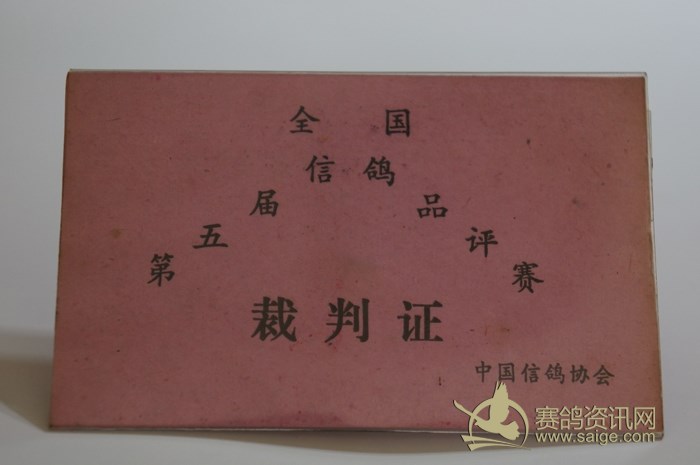 全国
第五届信鸽品评赛
裁判证
中国信鸽协会
赛鸽资讯网
www.saige.com